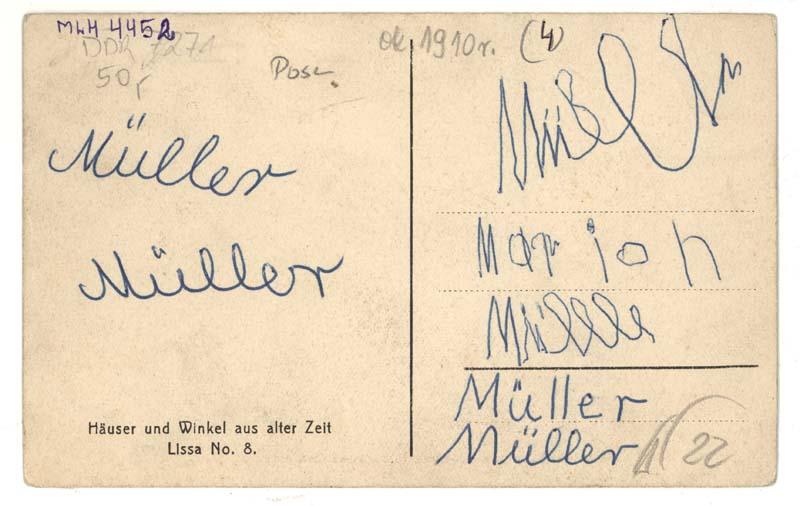 MLH 4452
DDR 7271
50,-
Posł.
ok 1910r. (4)
Müller
Müller
Häuser und Winkel aus alter Zeit
Lissa No. 8.
Marion
Müllle
Müller
Müller
22